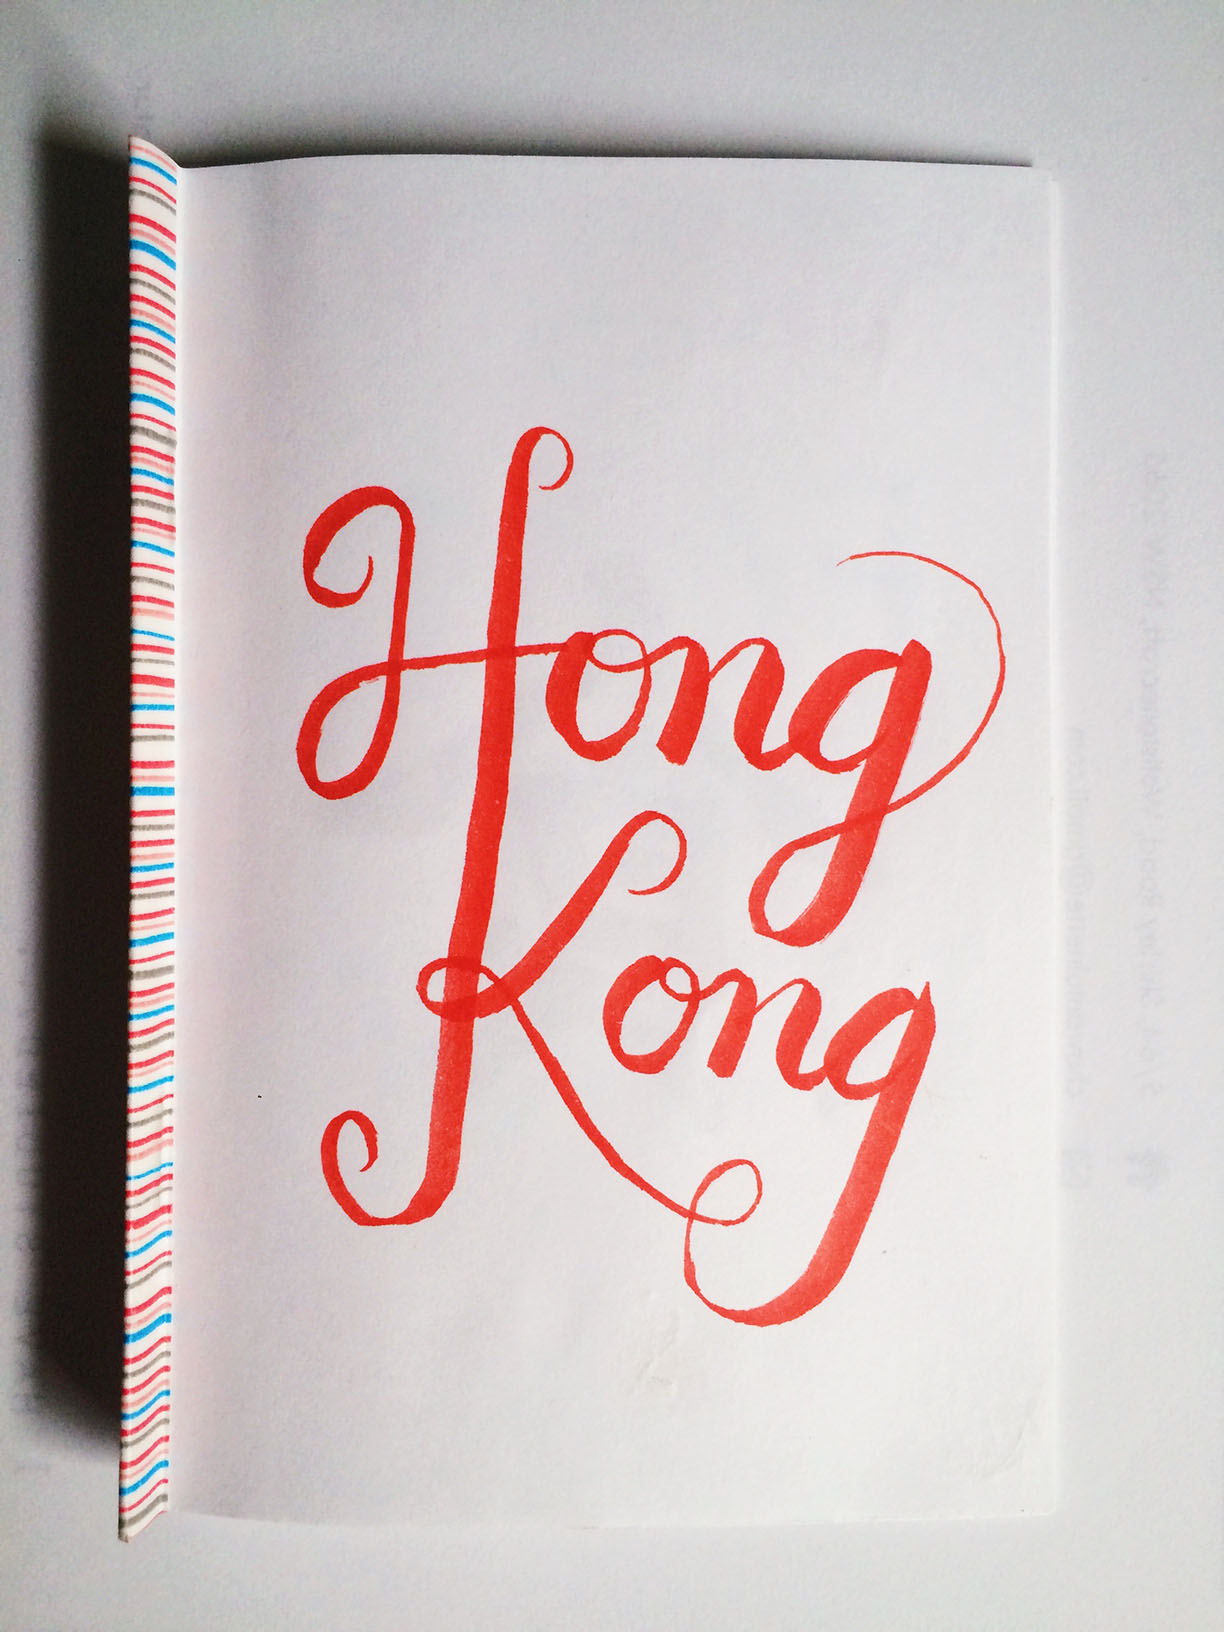 Hong
Kong